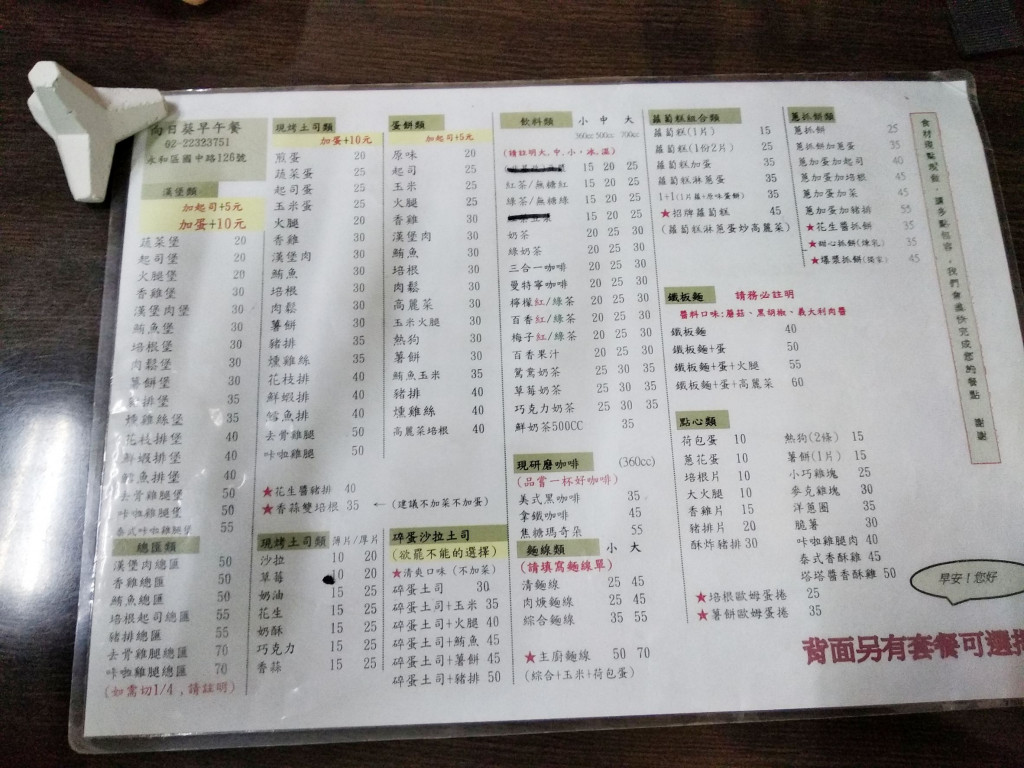 向日葵早午餐
02-22323751
永和區國中路126號
漢堡類
加起司+5元
加蛋+10元
蔬菜堡 20
起司堡 20
火腿堡 20
香雞堡 30
漢堡肉堡 30
鮪魚堡 30
培根堡 30
肉鬆堡 30
薯餅堡 30
豬排堡 35
燻雞絲堡 35
花枝排堡 40
鮮蝦排堡 40
鱈魚排堡 40
去骨雞腿堡 50
咔啦雞腿堡 50
泰式咔啦雞腿堡 55
總匯類
漢堡肉總匯 50
香雞總匯 50
鮪魚總匯 50
培根起司總匯 55
豬排總匯 55
去骨雞腿總匯 70
咔啦雞腿總匯 70
(如需切1/4,請註明)
現烤土司類
加蛋+10元
煎蛋 20
蔬菜蛋 25
起司蛋 25
玉米蛋 25
火腿 20
香雞 30
漢堡肉 30
鮪魚 30
培根 30
肉鬆 30
薯餅 30
豬排 35
燻雞絲 35
花枝排 40
鮮蝦排 40
鱈魚排 40
去骨雞腿 50
咔啦雞腿 50
★花生醬豬排 40
★香蒜雙培根 35 ← (建議不加菜不加蛋)
現烤土司類 薄片/厚片
沙拉 10 20
草莓 10 20
奶油 15 25
花生 15 25
奶酥 15 25
巧克力 15 25
香蒜 15 25
蛋餅類
加起司+5元
原味 20
起司 25
玉米 25
火腿 25
香雞 30
漢堡肉 30
鮪魚 30
培根 30
肉鬆 30
高麗菜 30
玉米火腿 30
熱狗 30
薯餅 30
鮪魚玉米 35
豬排 40
燻雞絲 40
高麗菜培根 40
碎蛋沙拉土司
(欲罷不能的選擇)
★清爽口味 (不加菜)
碎蛋土司 30
碎蛋土司+玉米 35
碎蛋土司+火腿 40
碎蛋土司+鮪魚 45
碎蛋土司+薯餅 45
碎蛋土司+豬排 50
飲料類 小 中 大
360cc 500cc 700cc
(請註明大,中,小,冰,溫)
15 20 25
紅茶/無糖紅 15 20 25
綠茶/無糖綠 15 20 25
15 20 25
奶茶 20 25 30
綠奶茶 20 25 30
三合一咖啡 20 25 30
曼特寧咖啡 20 25 30
檸檬紅/綠茶 20 25 30
百香紅/綠茶 20 25 30
梅子紅/綠茶 20 25 30
百香果汁 20 25 30
鴛鴦奶茶 25 30 35
草莓奶茶 25 30 35
巧克力奶茶 25 30 35
鮮奶茶500CC 35
現研磨咖啡 (360cc)
(品嘗一杯好咖啡)
美式黑咖啡 35
拿鐵咖啡 45
焦糖瑪奇朵 55
麵線類 小 大
(請填寫麵線單)
清麵線 25 45
肉焿麵線 25 45
綜合麵線 35 55
★主廚麵線 50 70
(綜合+玉米+荷包蛋)
蘿蔔糕組合類
蘿蔔糕(1片) 15
蘿蔔糕(1份2片) 25
蘿蔔糕加蛋 35
蘿蔔糕淋蔥蛋 35
1+1(1片蘿+原味蛋餅) 35
★招牌蘿蔔糕 45
(蘿蔔糕淋蔥蛋炒高麗菜)
蔥抓餅類
蔥抓餅 25
蔥抓餅加蛋 35
蔥加蛋加起司 40
蔥加蛋加培根 45
蔥加蛋加菜 45
蔥加蛋加豬排 55
★花生醬抓餅 35
★甜心抓餅(煉乳) 35
★爆漿抓餅(獨家) 45
鐵板麵 請務必註明
醬料口味:蘑菇、黑胡椒、義大利肉醬
鐵板麵 40
鐵板麵+蛋 50
鐵板麵+蛋+火腿 55
鐵板麵+蛋+高麗菜 60
點心類
荷包蛋 10
蔥花蛋 10
培根片 10
大火腿 10
香雞片 15
豬排片 20
酥炸豬排 30
熱狗(2條) 15
薯餅(1片) 15
小巧雞塊 25
麥克雞塊 30
洋蔥圈 35
脆薯 30
咔啦雞腿肉 40
泰式香酥雞 45
塔塔醬香酥雞 50
★培根歐姆蛋捲 25
★薯餅歐姆蛋捲 35
食材現點現做,請多點包容,我們會盡快完成您的餐點 謝謝
早安!您好
背面另有套餐可選